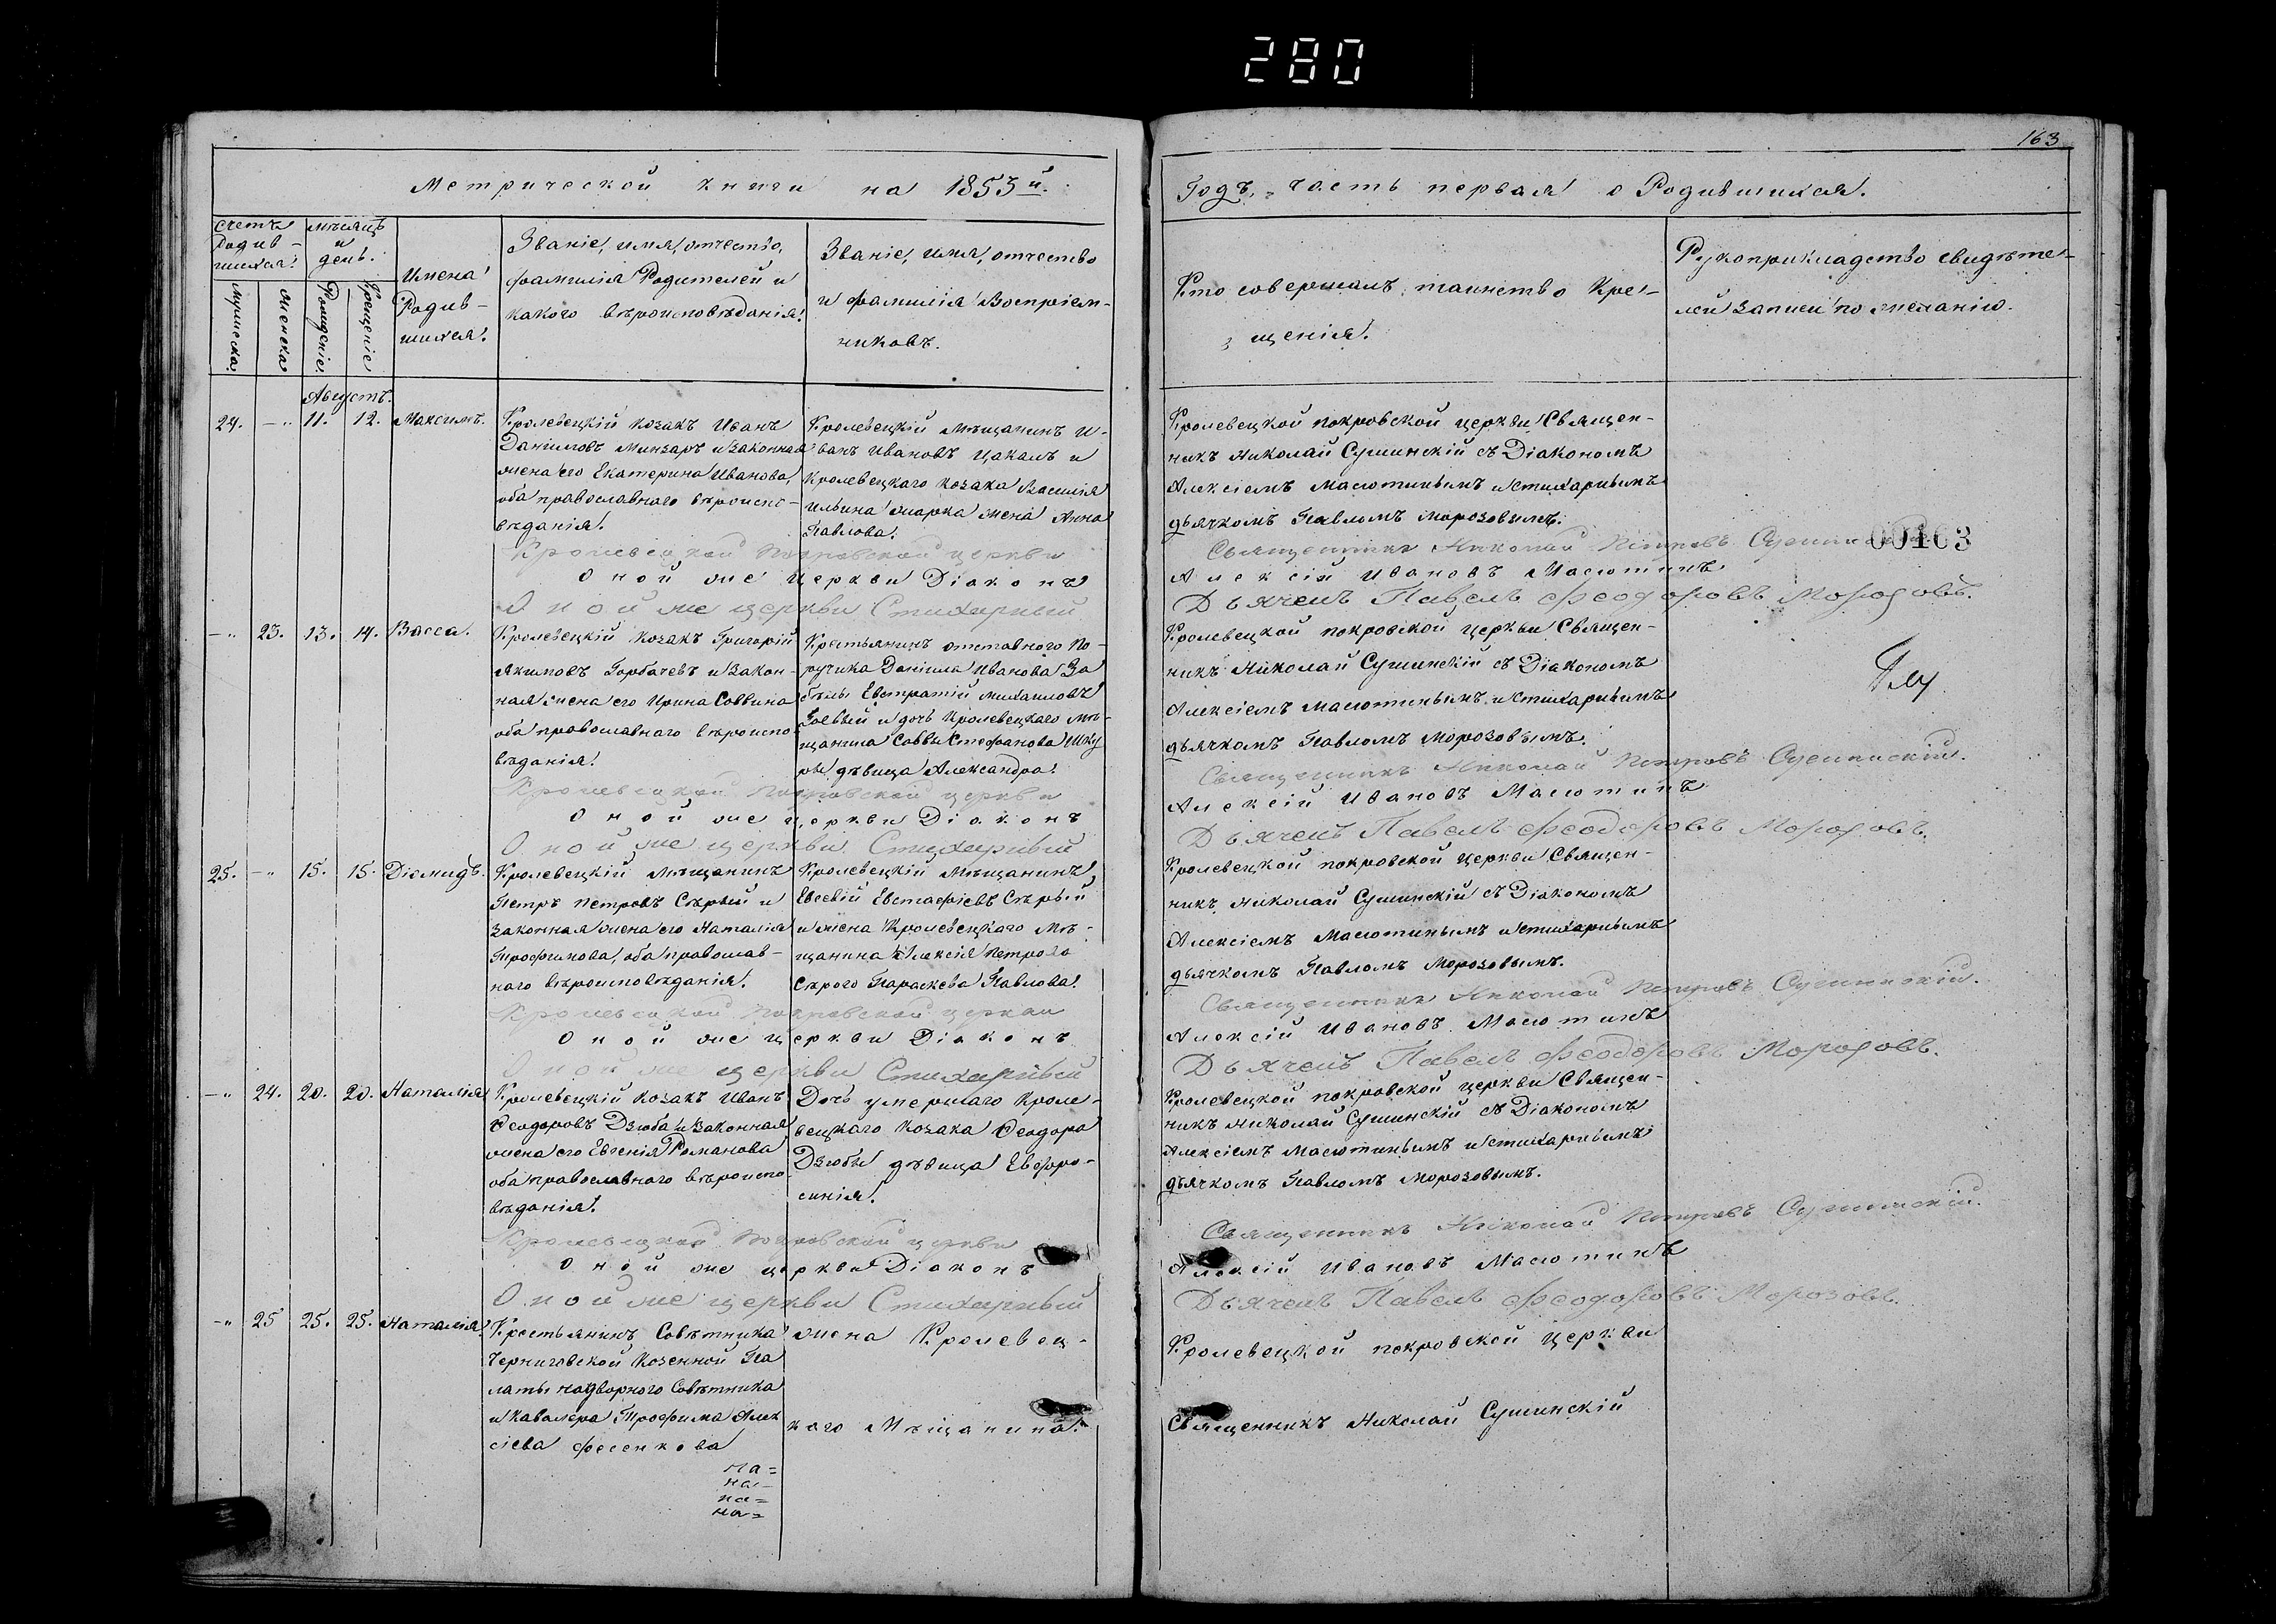 280
163
Метрической книги на 1853й.
Годъ, часть первая о Родившихся.
Счетъ
Родив-
шихся.
Мѣсяцъ
и
день.
Имена
Родив-
шихся.
Званіе, имя, отчество,
фамилія Родителей и
какого вѣроисповѣданія.
Званіе, имя, отчество
и фамилія Воспріем-
никовъ.
Кто совершалъ таинство Кре-
щенія.
Рукоприкладство свидѣте-
лей записи по желанію.
Мужеска.
Женска
Рожденіе.
Крещеніе
Августъ.
24. -" 11. 12. Максимъ.
Кролевецкій козакъ Иванъ
Даніиловъ Минзаръ и законная
жена его Екатерина Иванова,
оба православнаго вѣроиспо-
вѣданія.
Кролевецкій Мѣщанинъ И-
ванъ Ивановъ Цакалъ и
Кролевецкаго козака Василія
Ильина жена Анна
Павлова.
Кролевецкой покровской церкви Священ-
никъ Николай Сушинскій съ Діакономъ
Алексіемъ Масютинымъ и стихарнымъ
дьячкомъ Павломъ Морозовымъ.
Кролевецкой Покровской церкви Священникъ Николай Петровъ
00163
Оной же церкви Діаконъ Алексій Ивановъ Масютинъ
Оной же церкви Стихарный Дьячекъ Павелъ Феодоровъ Морозовъ.
-" 23. 13. 14. Васса.
Кролевецкій козакъ Григорій
Якимовъ Горбачевъ и закон-
ная жена его Ирина Саввина
оба православнаго вѣроиспо-
вѣданія.
Крестьянинъ отставного По-
ручика Даніила Иванова За
бѣлы Евстратій Михаиловъ
и дочь Кролевецкаго Мѣ-
щанина Саввы Стефанова Шку
ры дѣвица Александра.
Кролевецкой покровской церкви Священ-
никъ Николай Сушинскій съ Діакономъ
Алексіемъ Масютинымъ и стихарнымъ
дьячкомъ Павломъ Морозовымъ.
Кролевецкой Покровской церкви Священникъ Николай Петровъ Сушинскій.
Оной же церкви Діаконъ Алексій Ивановъ Масютинъ
Оной же церкви Стихарный Дьячекъ Павелъ Феодоровъ Морозовъ.
25. -" 15. 15. Діомидъ.
Кролевецкій Мѣщанинъ
Петръ Петровъ Сѣрый и
законная жена его Наталія
Трофимова, оба православ-
наго вѣроисповѣданія.
Кролевецкій Мѣщанинъ
Евсевій Евстафіевъ Сѣрый
и жена Кролевецкаго Мѣ-
щанина Алексія Петрова
Сѣрого Параскева Павлова.
Кролевецкой покровской церкви Священ-
никъ Николай Сушинскій съ Діакономъ
Алексіемъ Масютинымъ и стихарнымъ
дьячкомъ Павломъ Морозовымъ.
Кролевецкой Покровской церкви Священникъ Николай Петровъ Сушинскій.
Оной же церкви Діаконъ Алексій Ивановъ Масютинъ
Оной же церкви Стихарный Дьячекъ Павелъ Феодоровъ Морозовъ.
-" 24. 20. 20. Наталія
Кролевецкій козакъ Иванъ
Ѳеодоровъ Дзюба и законная
жена его Евгенія Романова
оба православнаго вѣроиспо-
вѣданія.
Дочь умершаго Кроле-
вецкаго козака Ѳеодора
Дзюбы дѣвица Евфро-
синія.
Кролевецкой покровской церкви Священ-
никъ Николай Сушинскій съ Діакономъ
Алексіемъ Масютинымъ и стихарнымъ
дьячкомъ Павломъ Морозовымъ.
Кролевецкой Покровской церкви Священникъ Николай Петровъ Сушинскій.
Оной же церкви Діаконъ Алексій Ивановъ Масютинъ
Оной же церкви Стихарный Дьячекъ Павелъ Феодоровъ Морозовъ.
-" 25 25. 25. Наталія.
Крестьянинъ Совѣтника
Черниговской Казенной Па
латы надворного Совѣтника
и кавалера Трофима Алек
сіева Фесенкова
на=
на=
на=
на=
жена Кролевец-
каго Мѣщанина.
Кролевецкой покровской церкви
Священникъ Николай Сушинскій